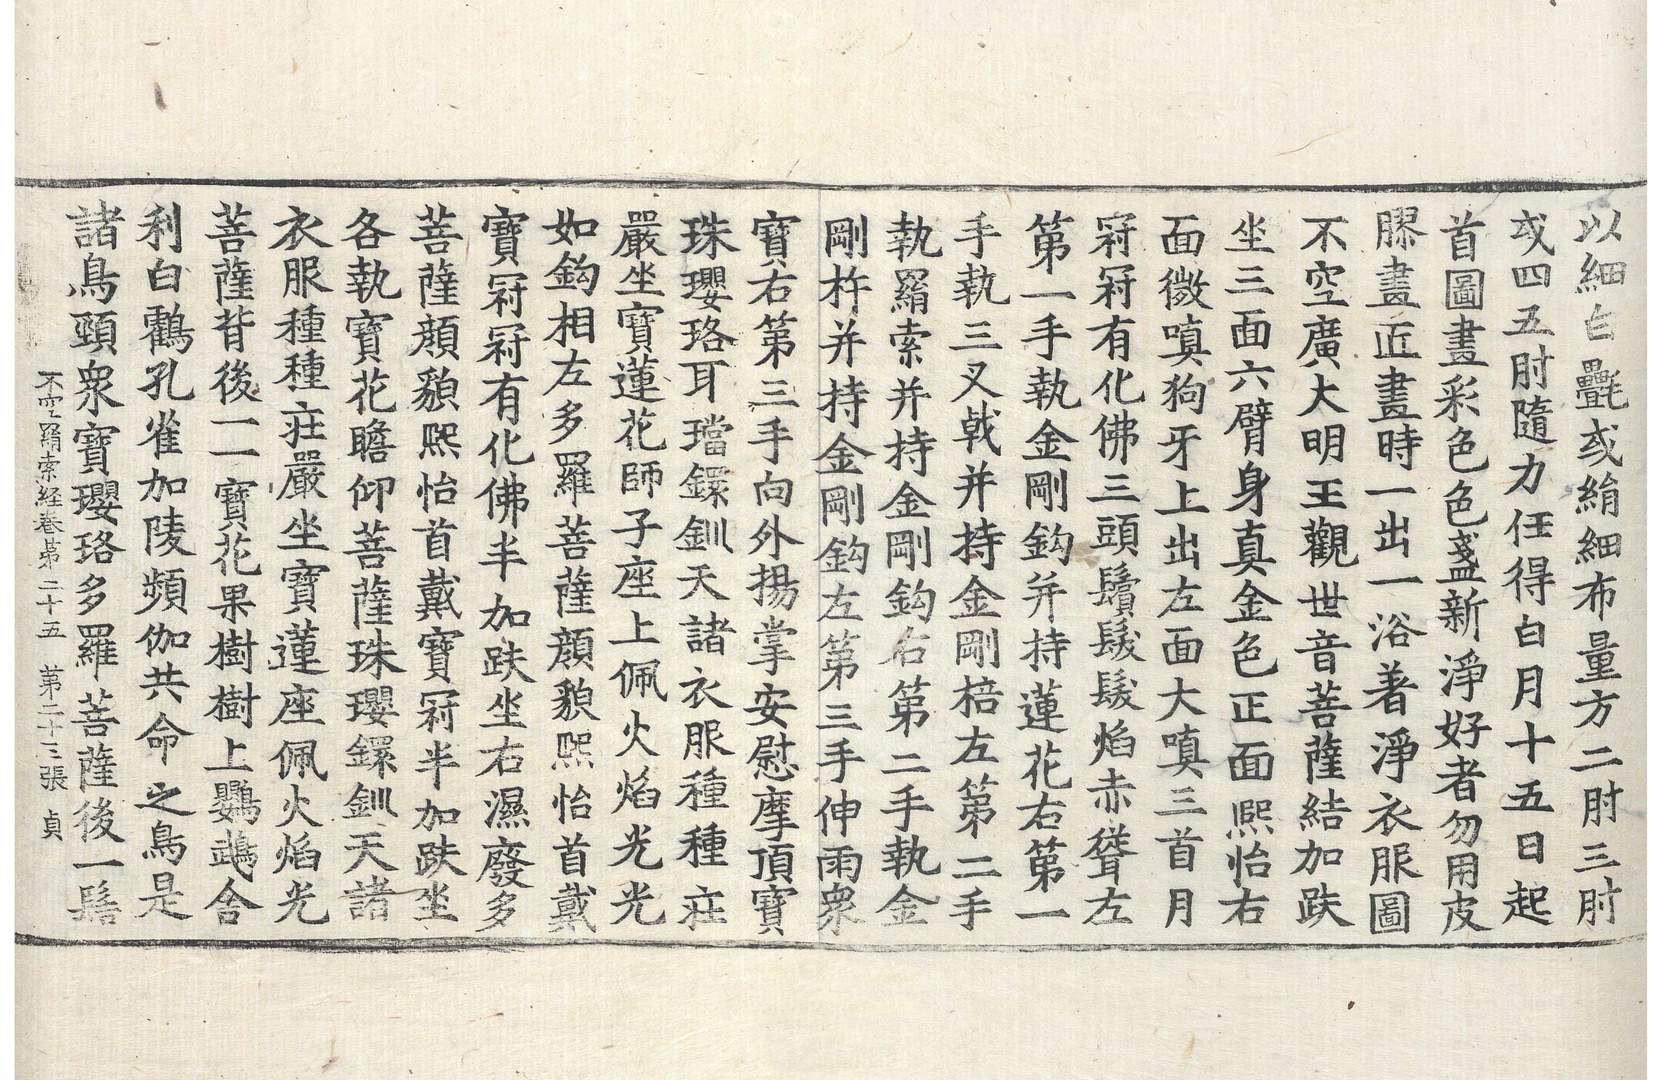 以細白㲲或絹細布量方二肘三肘
或四五肘隨力任得白月十五日起
首圖畫彩色色盞新淨好者勿用皮
膠畫匠畫時一出一浴著淨衣服圖
不空廣大明王觀世音菩薩結加趺
坐三面六臂身真金色正面熙怡右
面微嗔狗牙上出左面大嗔三首月
冠冠有化佛三頭鬚髮髮焰赤聳左
第一手執金剛鉤并持蓮花右第一
手執三叉戟并持金剛棓左第二手
執羂索并持金剛鉤右第二手執金
剛杵并持金剛鉤左第三手伸雨衆
寶右第三手向外揚掌安慰摩頂寶
珠瓔珞耳璫鐶釧天諸衣服種種莊
嚴坐寶蓮花師子座上佩火焰光光
如鉤相左多羅菩薩顏貌熙怡首戴
寶冠冠有化佛半加趺坐右濕廢多
菩薩顏貌熙怡首戴寶冠半加趺坐
各執寶花瞻仰菩薩珠瓔鐶釧天諸
衣服種種莊嚴坐寶蓮座佩火焰光
菩薩背後一一寶花果樹樹上鸚鵡舍
利白鸖孔雀加陵頻伽共命之鳥是
諸鳥頸衆寶瓔珞多羅菩薩後一髻
不空羂索経卷第二十五 第二十三張 貞